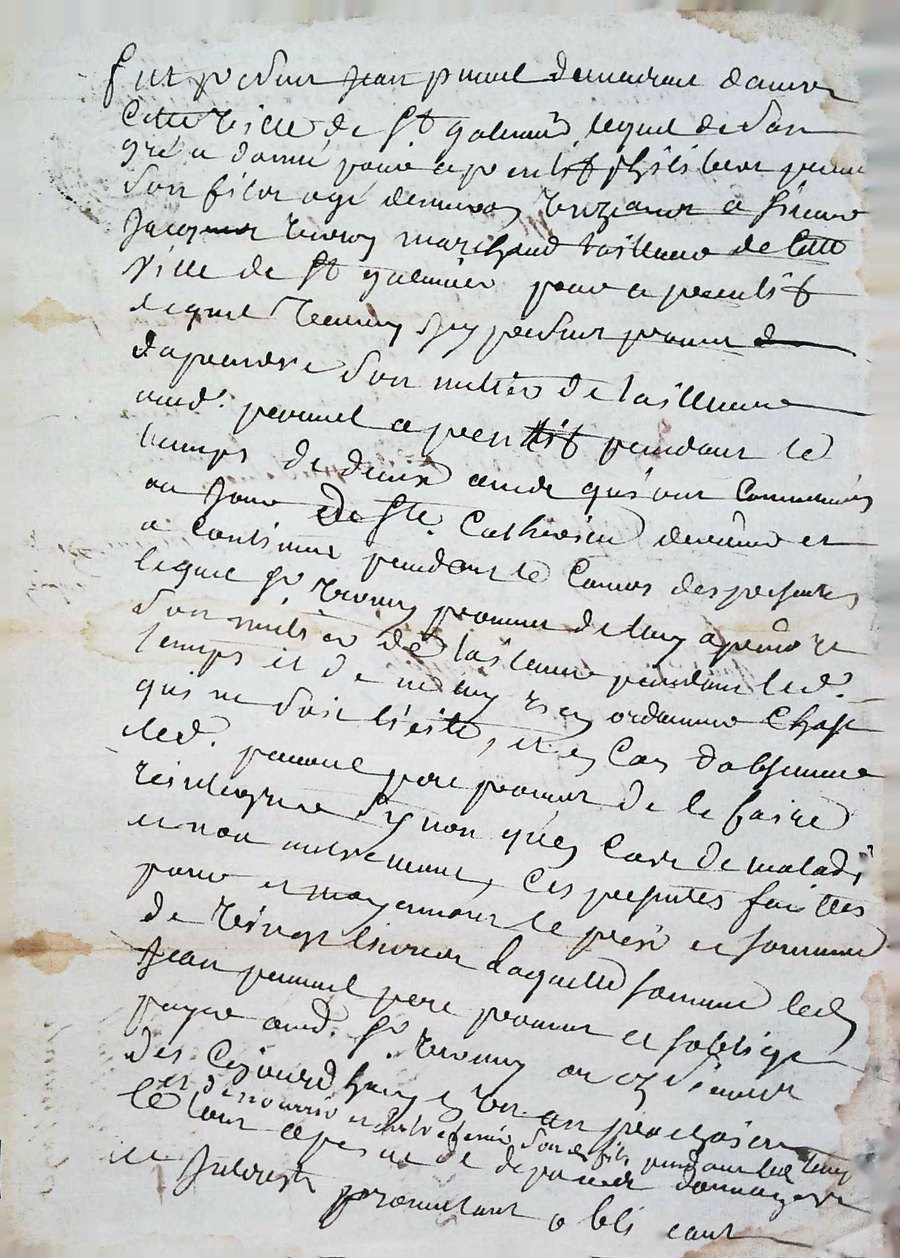 fut present Jean prunel demeurant dans
cette ville de St galmier lequel de son
gré a donné pour aprentif philibert prunel
son filz agé denviron  a sieur
Jacques  marchand tailleur de cette
ville de St galmier pour aprentif
lequel  icy present promet
daprendre son metier de tailleur
aud. prunel aprentif pendant le
temps de deux année qui ont commencés
au jour de Ste Catherine dernier et
a continuer pendant le cours des presentes
lequel Sr  promet de luy aprendre
son metier de tailleur pendant led.
temps et de ne luy rien ordonner chose
qui ne soit licitte, et en cas dabsence
led. prunel pere promet de le faire
reintegrer synon quen cas de maladie
et non autrement, ces presentes faittes
pour et moyennant le prix et somme
de vingt livres laquelle somme led.
Jean prunel pere promet et soblige
payer aud. Sr  ou ez siens
des cejourdhuy en un an prochain
et de nourrir et entretenir son filz pendant led. temp
le tout a peine de de tous domages
et interest promettant obligeant